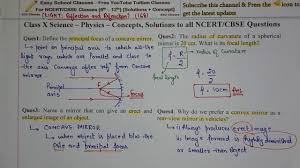 Easy School Classes - Free YouTube Tuition Classes
For NCERT/CBSE Classes (8th - 12th) [Science + Concepts]
[LIGHT: Reflection and Refraction] (L6)
Subscribe this channel & Press the icon to
get the latest updates
Class X Science – Physics – Concepts, Solutions to all NCERT/CBSE Questions
Ques1: Define the principal focus of a concave mirror.
→ point on principal axis to which all the
light rays which are parallel and close to
the axis converge after reflection from concave
mirror
Ques2: The radius of curvature of a spherical
mirror is 20 cm. What is its focal length?
f = R/2
f = 20/2
f = 10cm
Ques3: Name a mirror that can give an erect and
enlarged image of an object.
CONCAVE MIRROR
→ when object is placed b/w the
pole and principal focus
Ques4: Why do we prefer a convex mirror as a
rear-view mirror in vehicles?
→ Always produces erect image
→ Image formed is highly diminished
or smaller than object